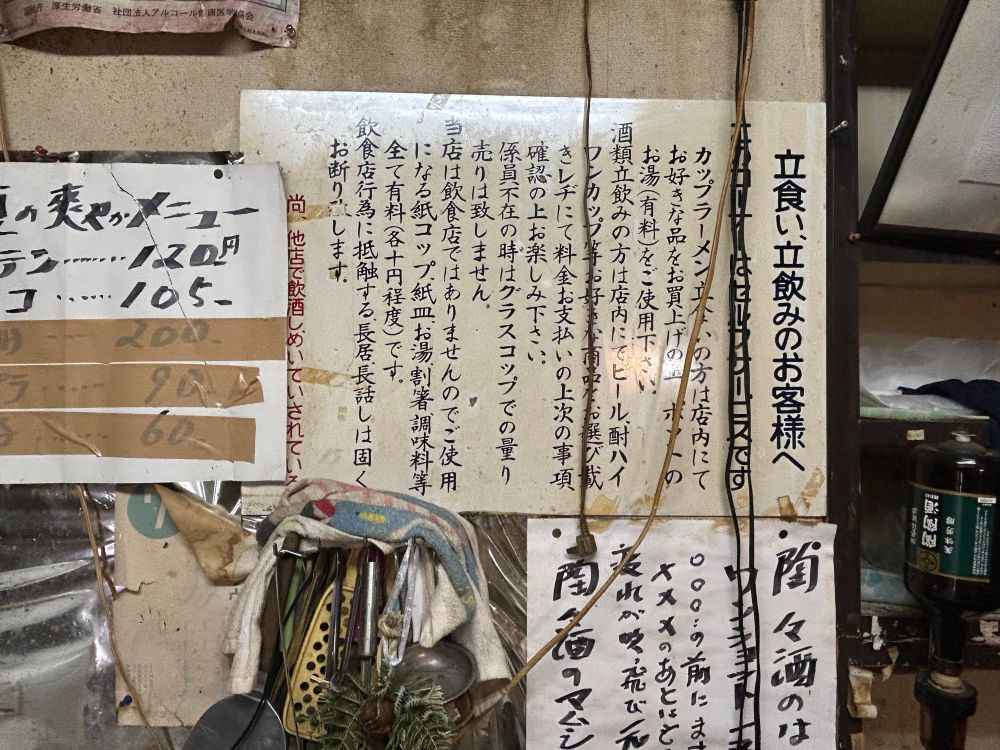 厚生労働省 社団法人アルコール健康医学協会
立食い、立飲みのお客様へ
はセルフサービスです
カップラーメン立食いの方は店内にて
お好きな品をお買上げの上 ポットの
お湯(有料)をご使用下さい。
酒類立飲みの方は店内にてビール、酎ハイ
ワンカップ等お好きな商品をお選び戴
きレヂにて料金お支払いの上次の事項
確認の上お楽しみ下さい。
係員不在の時はグラスコップでの量り
売りは致しません。
当店は飲食店ではありませんのでご使用
になる紙コップ、紙皿お湯割箸調味料等
全て有料(各十円程度)です。
飲食店行為に抵触する長居長話しは固く
お断り致します。
尚 他店で飲酒しめいていされている
の爽やかメニュー
テン……120円
コ……105-
200-
90-
60-
陶々酒のは
ワンショット
○○○の前にます
×××のあとはど
疲れが吹飛び元
陶々酒のマムシ
陶陶酒